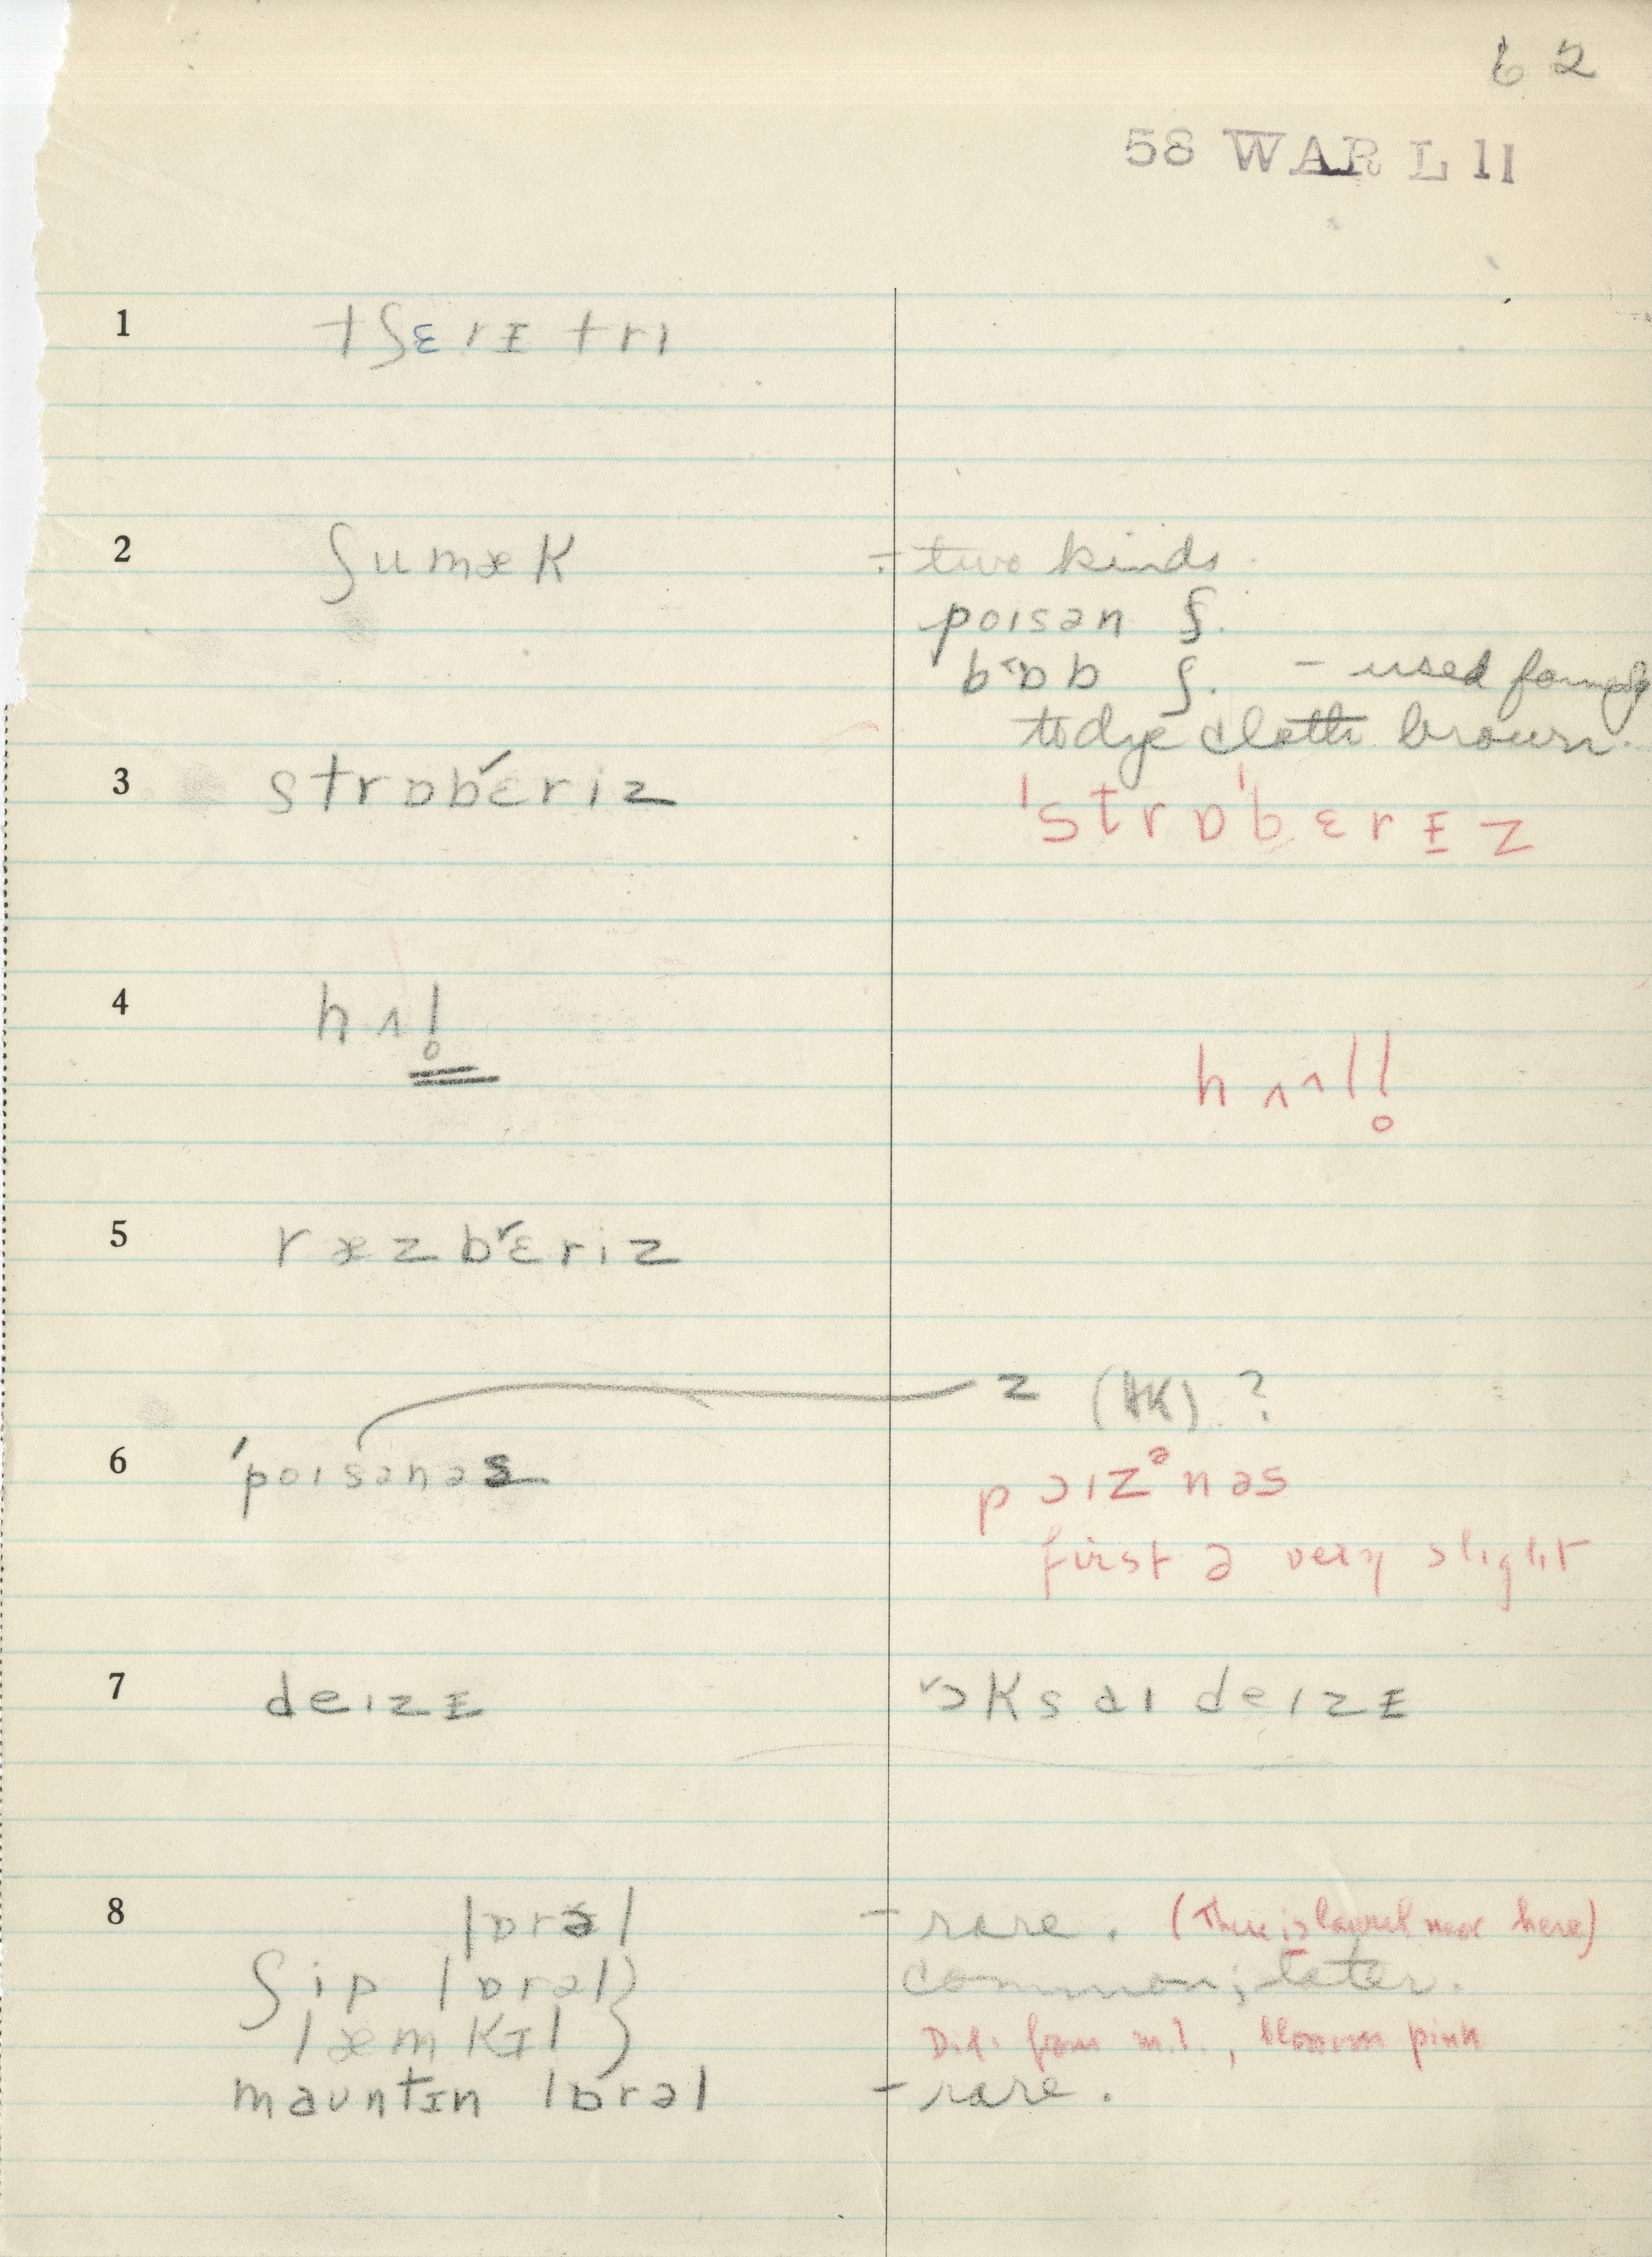 62
58 WAR L 11
1 tʃɛrɪ tri
2 ʃumæk - two kinds.
poisən ʃ.
ʃ. - used formerly
to dye cloth brown.
3 strɒb˅ɛriz
'strɒˈbɛrɪz
4 hʌl̥
hʌ^ll̥
5 ræzb˅ɛriz
z (HK) ?
6 'poɪsənəs
pɔɪzᵊnəs
first ə very slight
7 deɪzɪ ˅ɔksaɪ deɪzɪ
8 lɒrəl - rare. (There is laurel near here)
ʃip lɒrəl } common; later.
læmkɪl } Dif. from m.l., blossom pink
mauntɪn lɒrəl - rare.